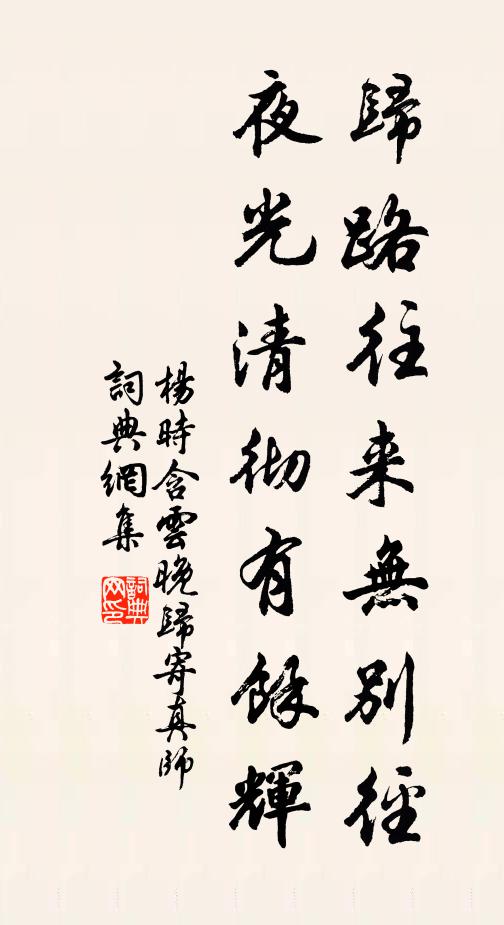 歸路往来無別徑
夜光清彻有餘輝
楊時含雲晚歸寄真師
詞典網集
詞典
网印